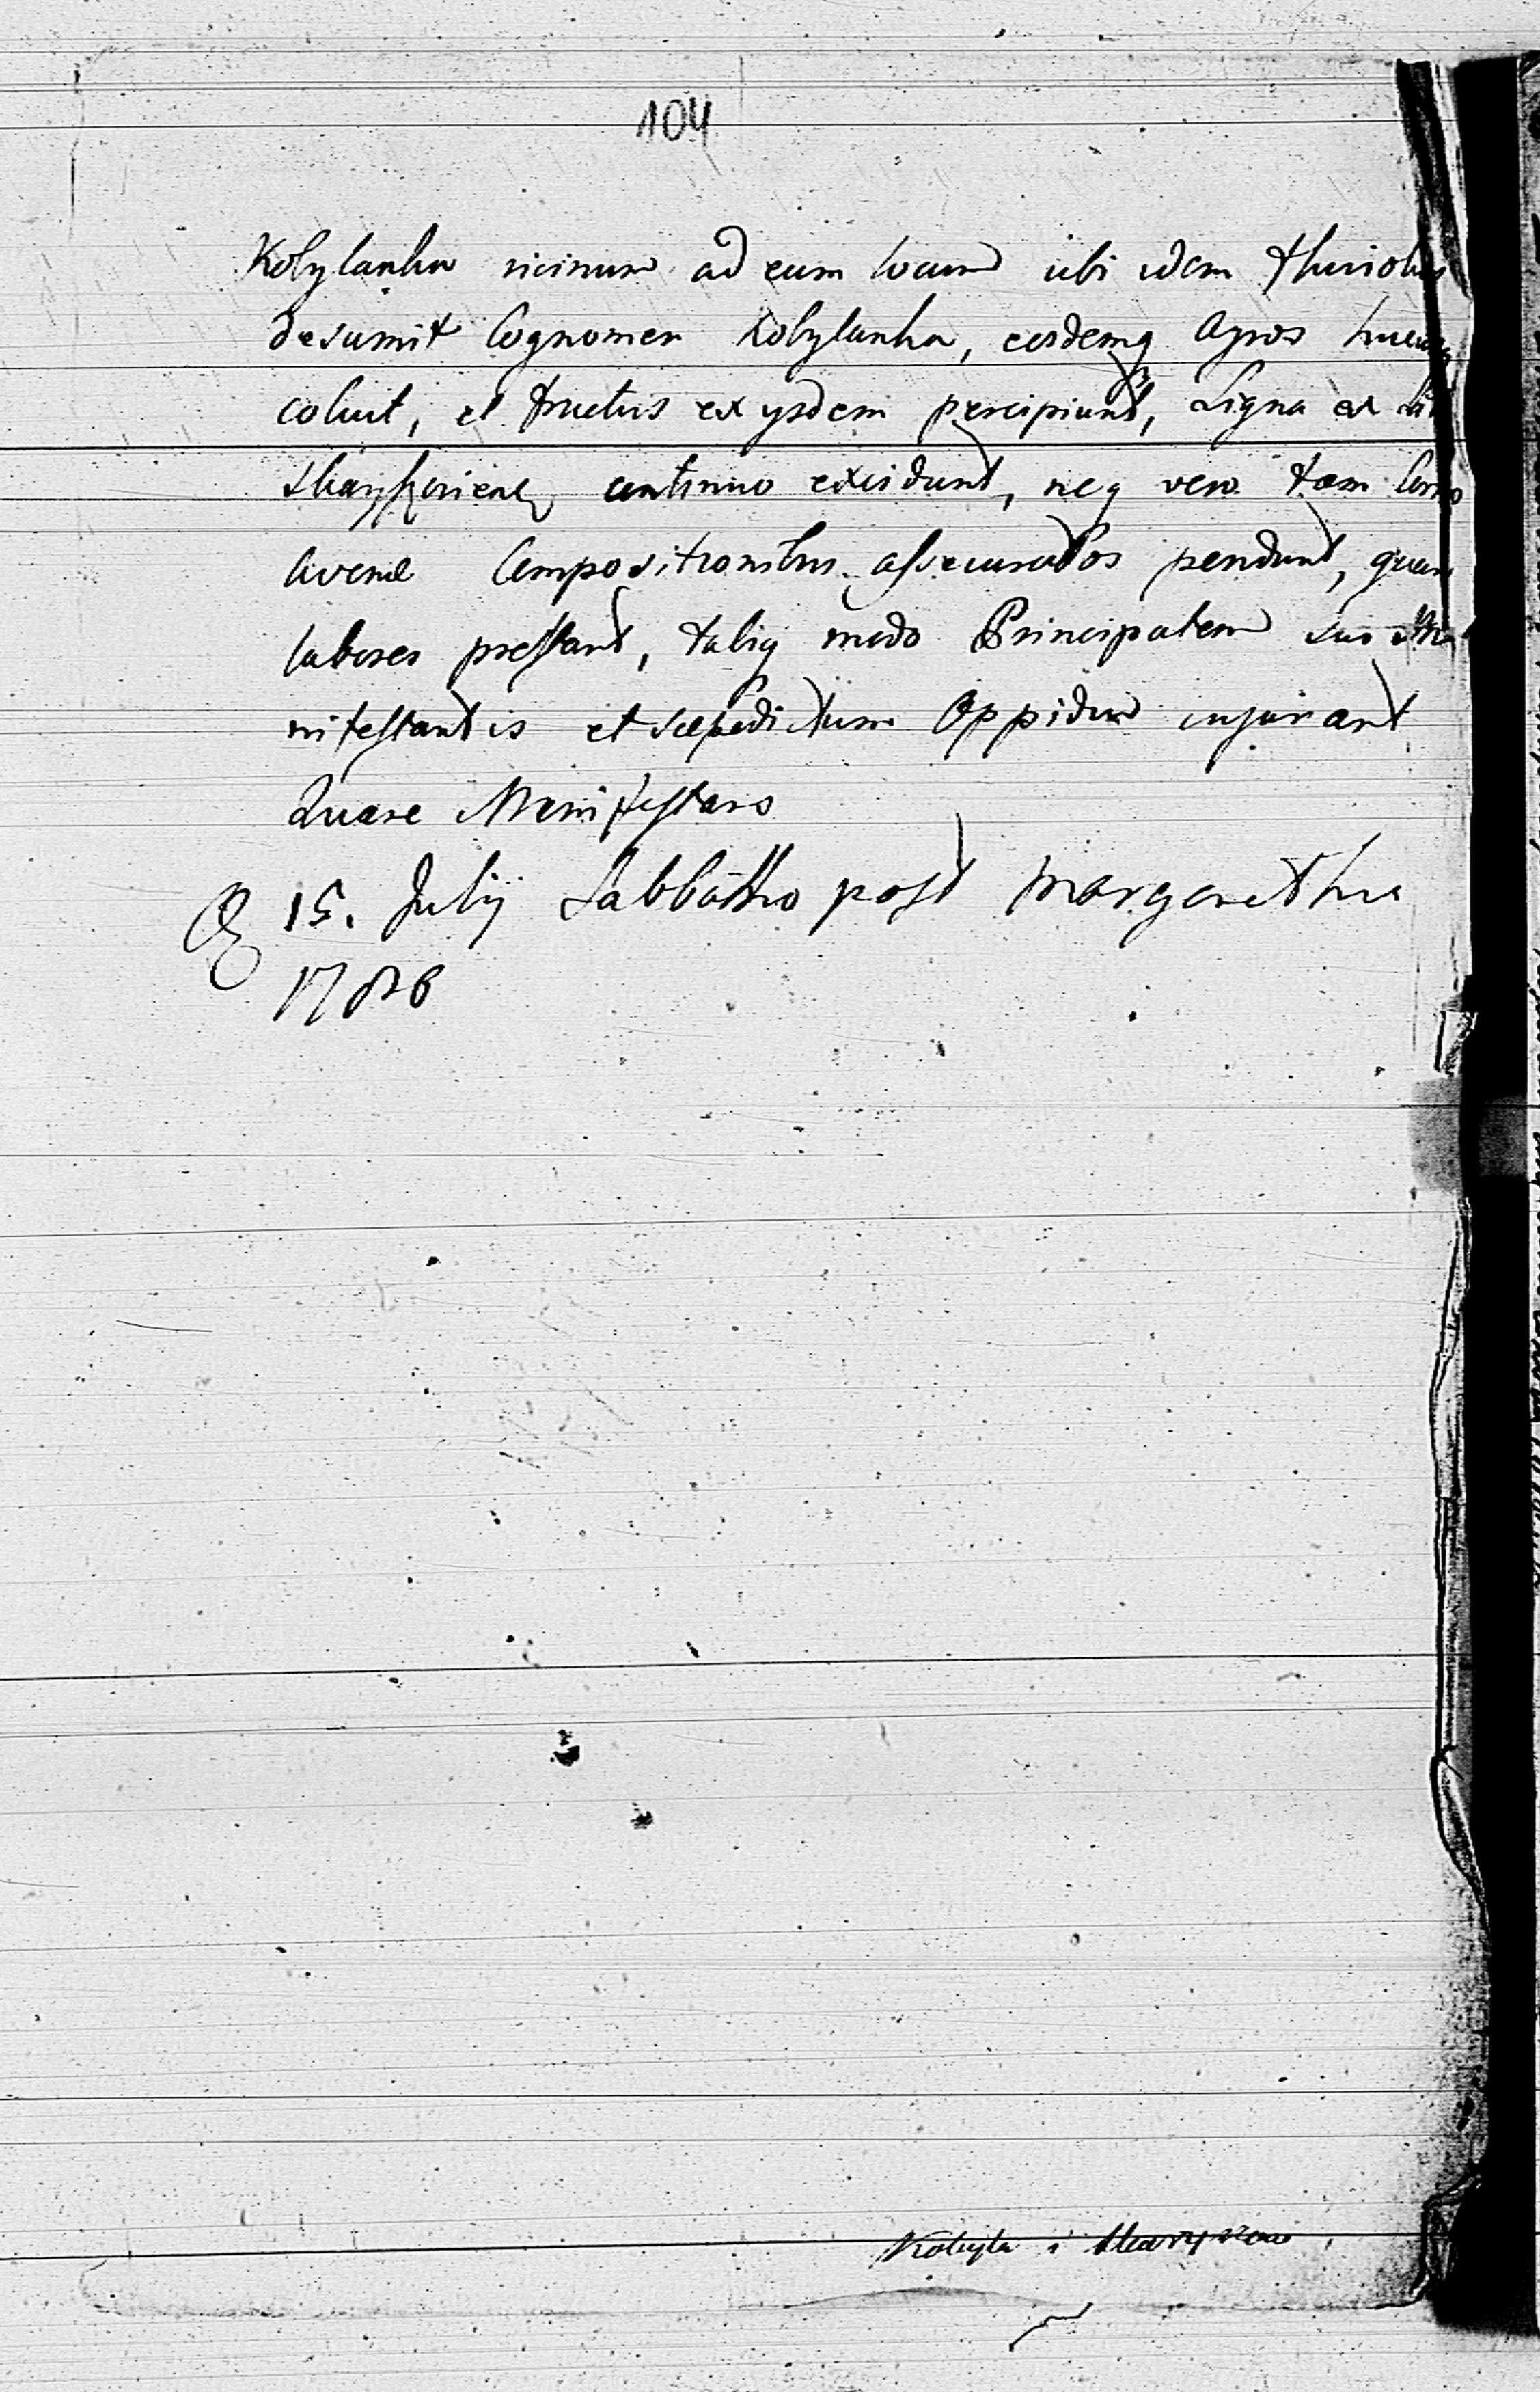 104
Kobylanka vicinum ad eum locum ubi idem fluviolus
desumit Cognomen Kobylanka, eosdemq Agros hucusq
coluit, et fructus ex ysdem percipiunt, Ligna ex
continuo excidunt, neq vero tam
Avenæ Compositionibus assecuratos pendunt, quam
labores prestant, taliq modo Principalem suo Ma
nifestantis et sæpedictum Oppidum injuriant
Quare Manifestans
15. Julij Sabbatho post Margaretha
1786
Kobyla i Skaryszow